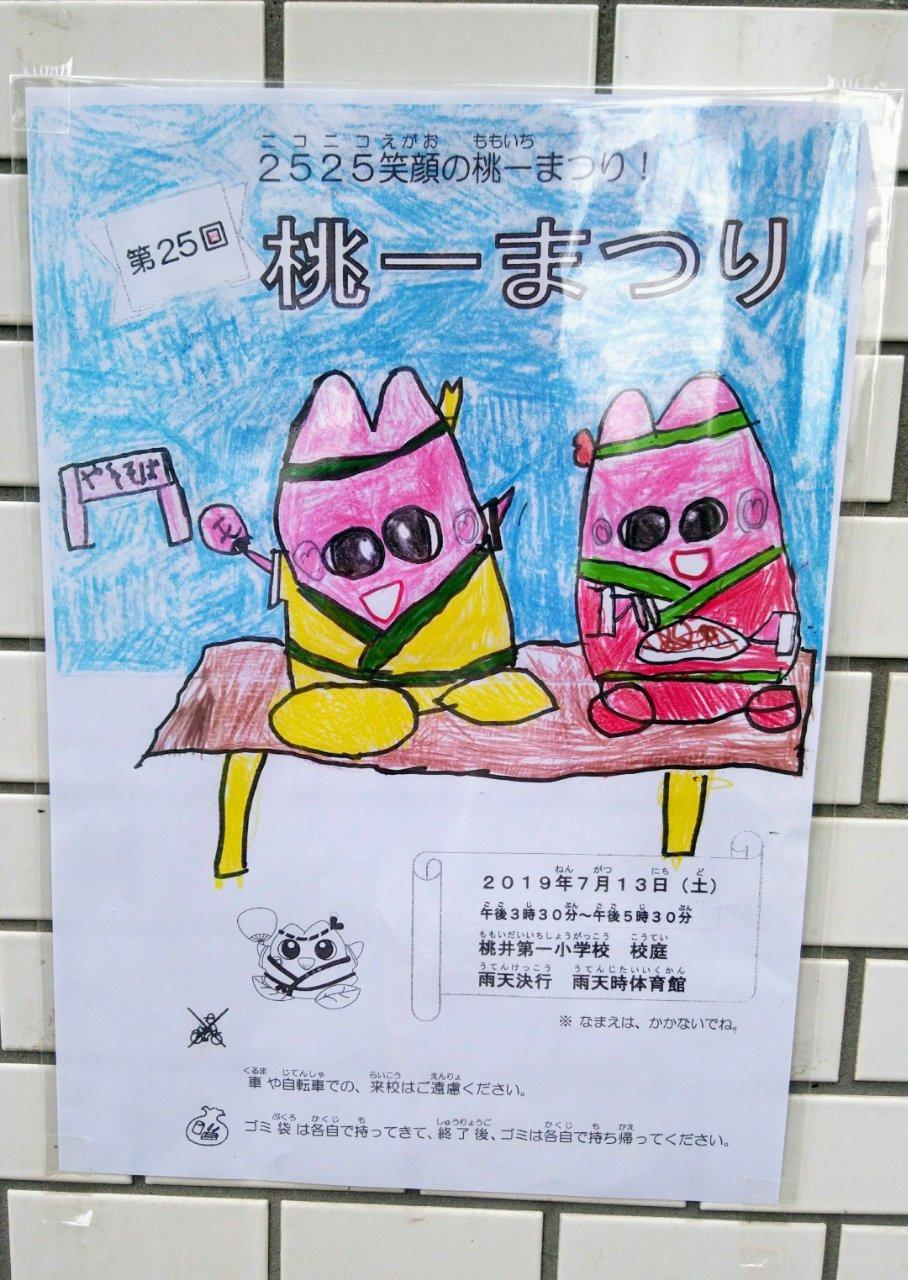 ニコニコえがお ももいち
2525笑顔の桃一まつり!
第25回
桃一まつり
やきそば
ねん がつ にち ど
2019年7月13日(土)
ごご じ ぷん ごご じ ぷん
午後3時30分~午後5時30分
ももいだいいちしょうがっこう こうてい
桃井第一小学校 校庭
うてんけっこう うてんじたいいくかん
雨天決行 雨天時体育館
※ なまえは、かかないでね。
くるま じてんしゃ らいこう えんりょ
車や自転車での、来校はご遠慮ください。
ぶくろ かくじ も しゅうりょうご かくじ も かえ
ゴミ袋は各自で持ってきて、終了後、ゴミは各自で持ち帰ってください。